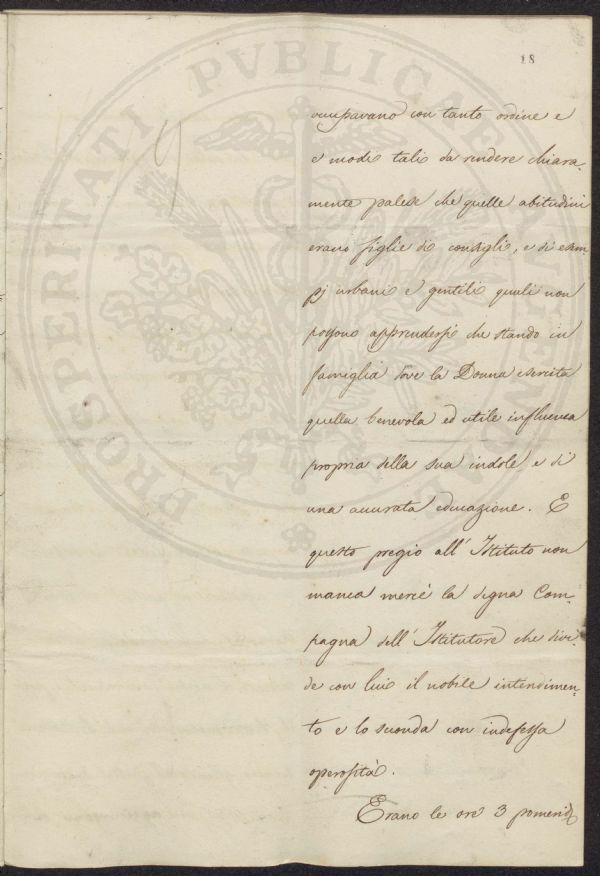 18
PROSPERITATI PVBLICAE
occupavano con tanto ordine e
e modi tali da rendere chiara-
mente palese che quelle abitudini
erano figlie di consigli, e di esem
pj urbani e gentili quali non
possono apprendersi che stando in
famiglia dove la Donna esercita
quella benevola ed utile influenza
propria della sua indole e di
una accurata educazione. E
questo pregio all' Istituto non
manca mercè la degna Com-
pagna dell' Istitutore che divi-
de con lui il nobile intendimen-
to e lo seconda con indefessa
operosità.
Erano le ore 3 pomerid